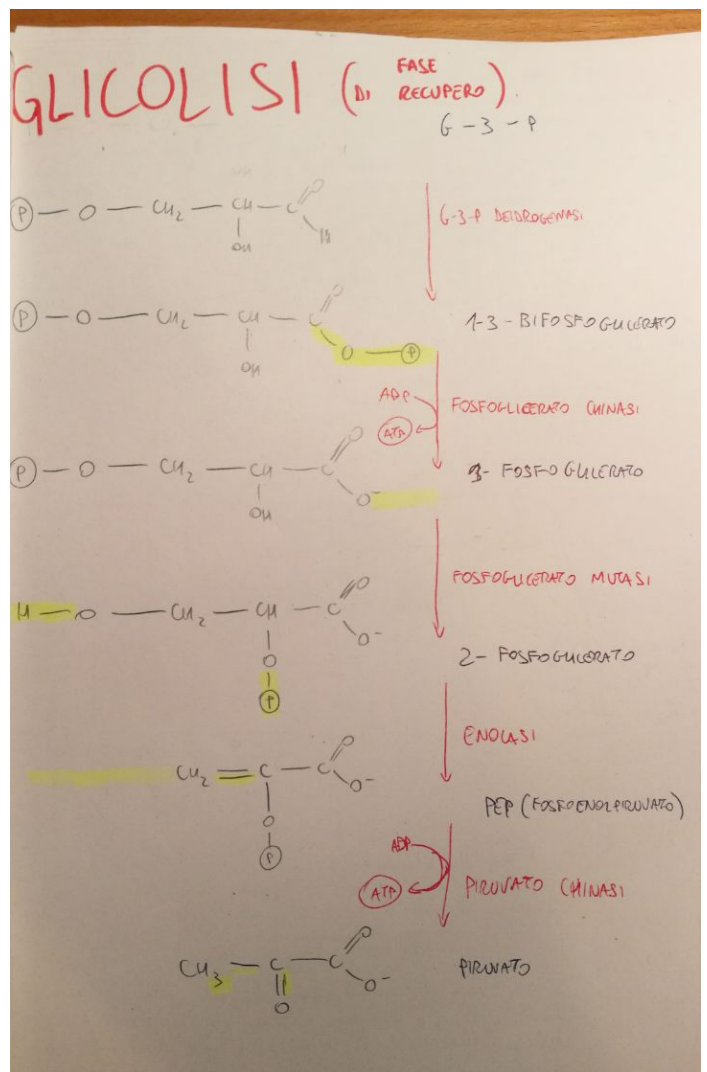 GLICOLISI (FASE DI RECUPERO)
G-3-P
P — O — CH2 — CH — C O
OH H
G-3-P DEIDROGENASI
P — O — CH2 — CH — C O
O — P
OH
1-3-BIFOSFOGLICERATO
ADP
ATP
FOSFOGLICERATO CHINASI
P — O — CH2 — CH — C O
O-
OH
3-FOSFOGLICERATO
FOSFOGLICERATO MUTASI
H — O — CH2 — CH — C O
O-
O
P
2-FOSFOGLICERATO
ENOLASI
CH2 = C — C O
O-
O
P
PEP (FOSFOENOLPIRUVATO)
ADP
ATP
PIRUVATO CHINASI
CH3 — C — C O
O-
O
PIRUVATO